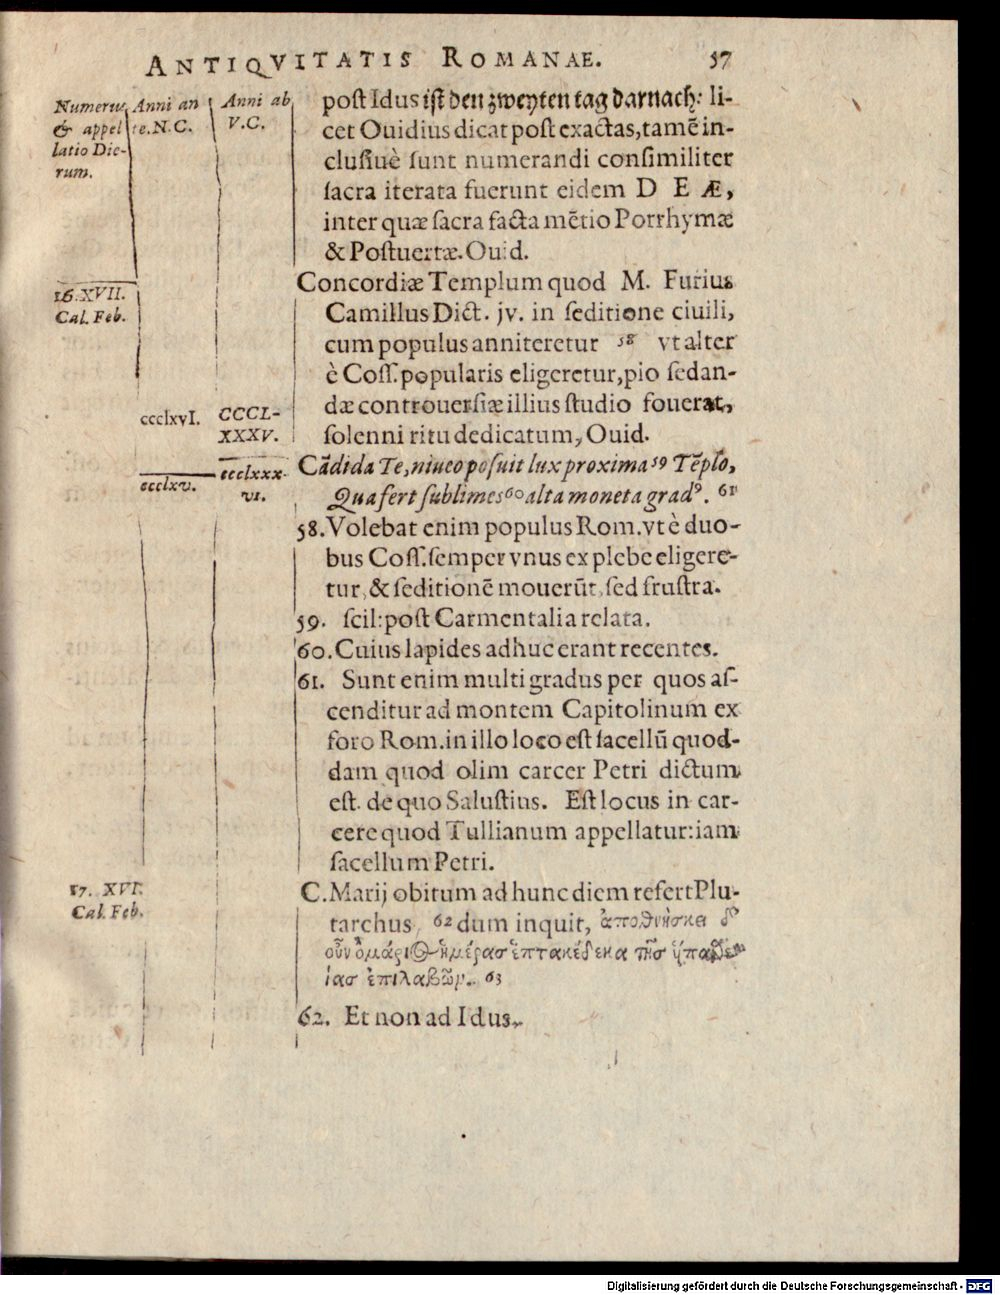 ANTIQVITATIS ROMANAE. 57
Numerus Anni an Anni ab
& appel te. N. C. V. C.
latio Die-
rum.
post Idus ist den zweyten tag darnach: li-
cet Ouidius dicat post exactas, tamē in-
clusiuè sunt numerandi consimiliter
sacra iterata fuerunt eidem D E Æ,
inter quæ sacra facta mētio Porrhymæ
& Postuertæ. Ouid.
16. XVII.
Cal. Feb.
Concordiæ Templum quod M. Furius
Camillus Dict. jv. in seditione ciuili,
cum populus anniteretur 58 vt alter
è Coss. popularis eligeretur, pio sedan-
dæ controuersiæ illius studio fouerat,
solenni ritu dedicatum, Ouid.
ccclxvI. CCCL-
XXXV.
ccclxv. ccclxxx-
vi.
Cādida Te, niueo posuit lux proxima 59 Tēplo,
Qua fert sublimes 60 alta moneta grad⁹. 61
58. Volebat enim populus Rom. vt è duo-
bus Coss. semper vnus ex plebe eligere-
tur, & seditionē mouerūt, sed frustra.
59. scil: post Carmentalia relata.
60. Cuius lapides adhuc erant recentes.
61. Sunt enim multi gradus per quos as-
cenditur ad montem Capitolinum ex
foro Rom. in illo loco est sacellū quod-
dam quod olim carcer Petri dictum
est. de quo Salustius. Est locus in car-
cere quod Tullianum appellatur: iam
sacellum Petri.
17. XVI.
Cal. Feb.
C. Marij obitum ad hunc diem refert Plu-
tarchus, 62 dum inquit, ἀποθνήσκει δ'
οὖν ὁ μάριος ἡμέρας ἑπτακαίδεκα τῆς ὑπατε
ίας ἐπιλαβῶν. 63
62. Et non ad Idus.
Digitalisierung gefördert durch die Deutsche Forschungsgemeinschaft - DFG